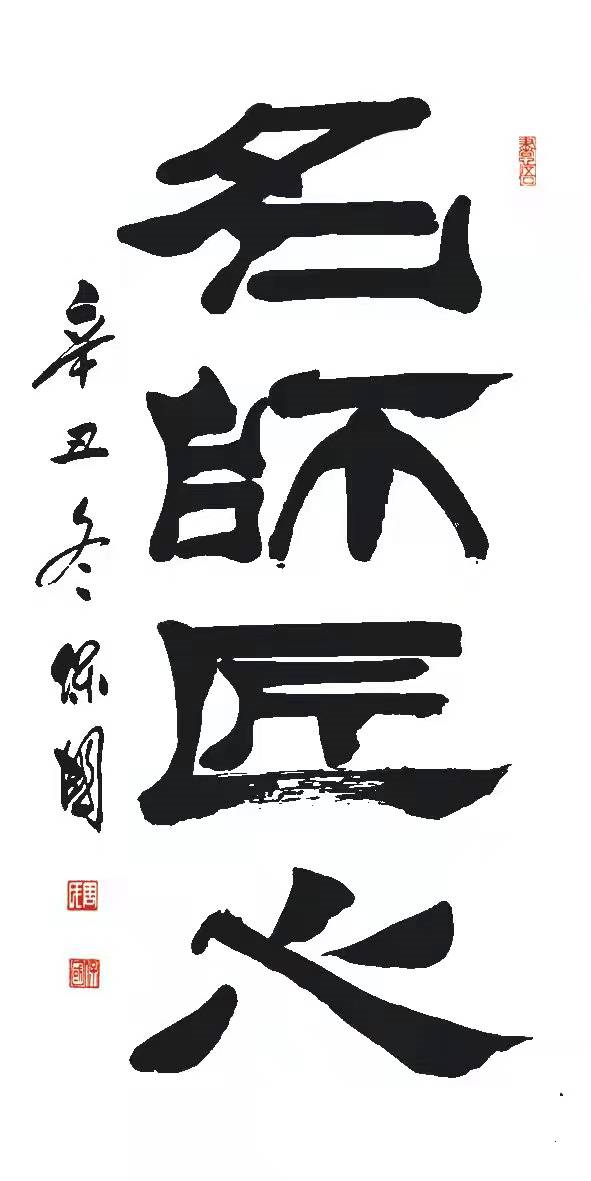 名師匠心
辛丑冬保國